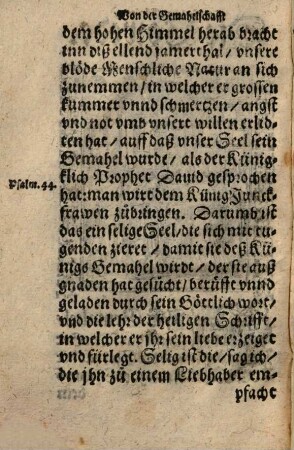 Von der Gemahelschafft
dem hohen Himmel herab bracht
inn diß ellend jamerthal / vnsere
blöde Menschliche Natur an sich
zunemmen / in welcher er grossen
kummer vnnd schmertzen / angst
vnd not vmb vnsert willen erlid-
ten hat / auff daß vnser Seel sein
Gemahel wurde / als der Künig-
klich Prophet Dauid gesprochen
Psalm. 44.
hat: man wirt dem Künig Junck-
frawen zübringen. Darumb ist
das ein selige Seel / die sich mit tu-
genden zieret / damit sie deß Kü-
nigs Gemahel wirdt / der sie auß
gnaden hat gesücht / berüfft vnnd
geladen durch sein Göttlich wort /
vnd die lehr der heiligen Schrifft /
in welcher er jhr sein liebe erzeiget
vnd fürlegt. Selig ist die / sag ich /
die jhn zü einem Liebhaber em-
pfacht